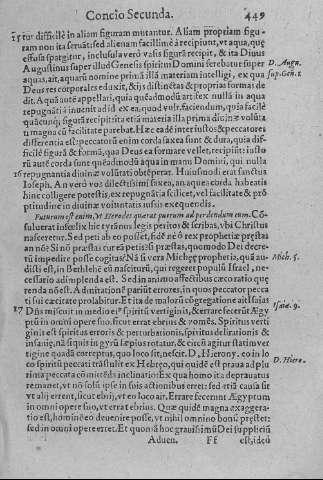 Concio Secunda. 449
15 tur difficilē in aliam figuram mutantur. Aliam propriam figu-
ram non ita seruāt: sed alienam facillimè recipiunt, vt aqua, quę
effusa spargitur, inclusa verò valis figurā recipit, & ita Diuus
Augustinus super illud Genesis spiritus Domini ferebatur super
D. Aug.
aquas, ait, aquarū nomine primā illā materiam intelligi, ex qua
sup. Gen. 1
Deus res corporales eduxit, & ijs distinctas & proprias formas de
dit. Aquā autē appellari, quia quēadmodū artifex nulla in aqua
repugnātiā inuenit ad id ex ea, quod vult faciendum, quia facile
quācunq; figurā recipit: ita etiā materia illa prima diuinæ volūta
ti magna cū facilitate parebat. Hæc eadē inter iustos & peccatores
differentia est: peccatorū enim corda saxea sunt & dura, quia dif-
ficile figurā & formā, qua Deus ea formare vellet, recipiunt: iusto
rū autē corda sunt quēadmodū aqua in manu Domini, qui nulla
16 repugnantia diuinæ volūtati obtēperat. Huiusmodi erat sanctus
Ioseph. An verò vos dilectissimi saxea, an aquea corda habeatis
hinc colligere potestis, ex repugnātia scilicet, vel facilitate & prō
ptitudine in diuinæ voluntatis iussis exequendis.
Futurum est enim, vt Herodes quærat puerum ad perdendum eum. Cō-
suluerat infœlix hic tyrannus legis peritos & scribas, vbi Christus
nasceretur. Sed peti ab eo posset, fidē ne his ex prophetiæ præstas
an nō? Si nō præstas cur eā petis? sū præstas, quomodo Dei decre-
tū impedire posse cogitas? Nā si vera Micheę prophetia, quā au-
Mich. 5.
disti est, in Bethlehē eū nasciturū, qui regeret populū Israel, ne-
cessariò adimplenda est. Sed in animo affectibus cæco ratio quę
renda nō est. Admirationē pariūt errores, in quos peccator pecca
ti sui cæcitate prolabitur. Et ita de malorū cōgregatione ait Isaias
Isaiæ. 9.
17 Dn̄s miscuit in medio ei⁹ spiritū vertiginis, & errare fecerūt Ægy
ptū in omni opere suo, sicut errat ebrius & vomēs. Spiritus verti
ginis est spiritus erroris & perturbationis, spiritus delirationis &
insanię, nā siquis in gyrū sæpius rotatur, & circū agitur statim ver
tigine quadā correptus, quo loco sit, nescit. D. Hierony. eo in lo
D. Hiero.
co spiritū peccati trāstulit ex Hebręo, qui quidē est praua ad plu
rima peccata cōmittēda inclinatio: Ex qua homo ita deprauatus
remanet, vt nō solū ipse in suis actionibus erret: sed etiā causa sit
vt alij errent, sicut ebrij, vt eo loco ait. Errare fecerunt Ægyptum
in omni opere suo, vt errat ebrius. Quæ quidē magna exaggera-
tio est, hominē eò deuenire posse, vt nihil omnino bonū præstet:
sed in omni opere erret. Et quoniā hoc grauissimū Dei suppliciū
Aduen. Ff est, ideò